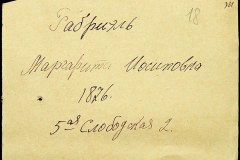 18
Габриэль
Маргарита Иосиповна
1876.
5ая Слободская 2.